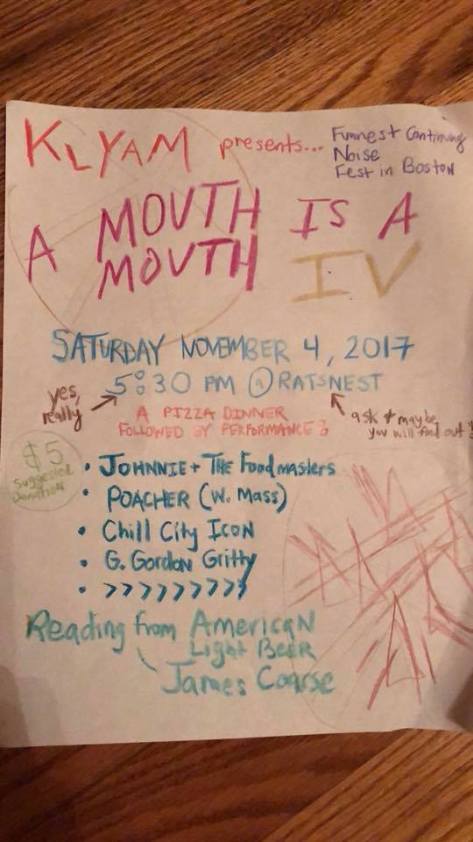 KLYAM presents... Funnest Continuing
Noise
Fest in Boston
A MOUTH IS A
MOUTH IV
SATURDAY NOVEMBER 4, 2017
yes, really
5:30 PM @ RATSNEST
ask & maybe
you will find out!
A PIZZA DINNER
FOLLOWED BY PERFORMANCES
$5
Suggested
Donation
• JOHNNIE + THE Foodmasters
• POACHER (W. MASS)
• Chill City Icon
• G. Gordon Gritty
• >>>>>>>>>
Reading from AMERICAN
Light Beer
James Coarse